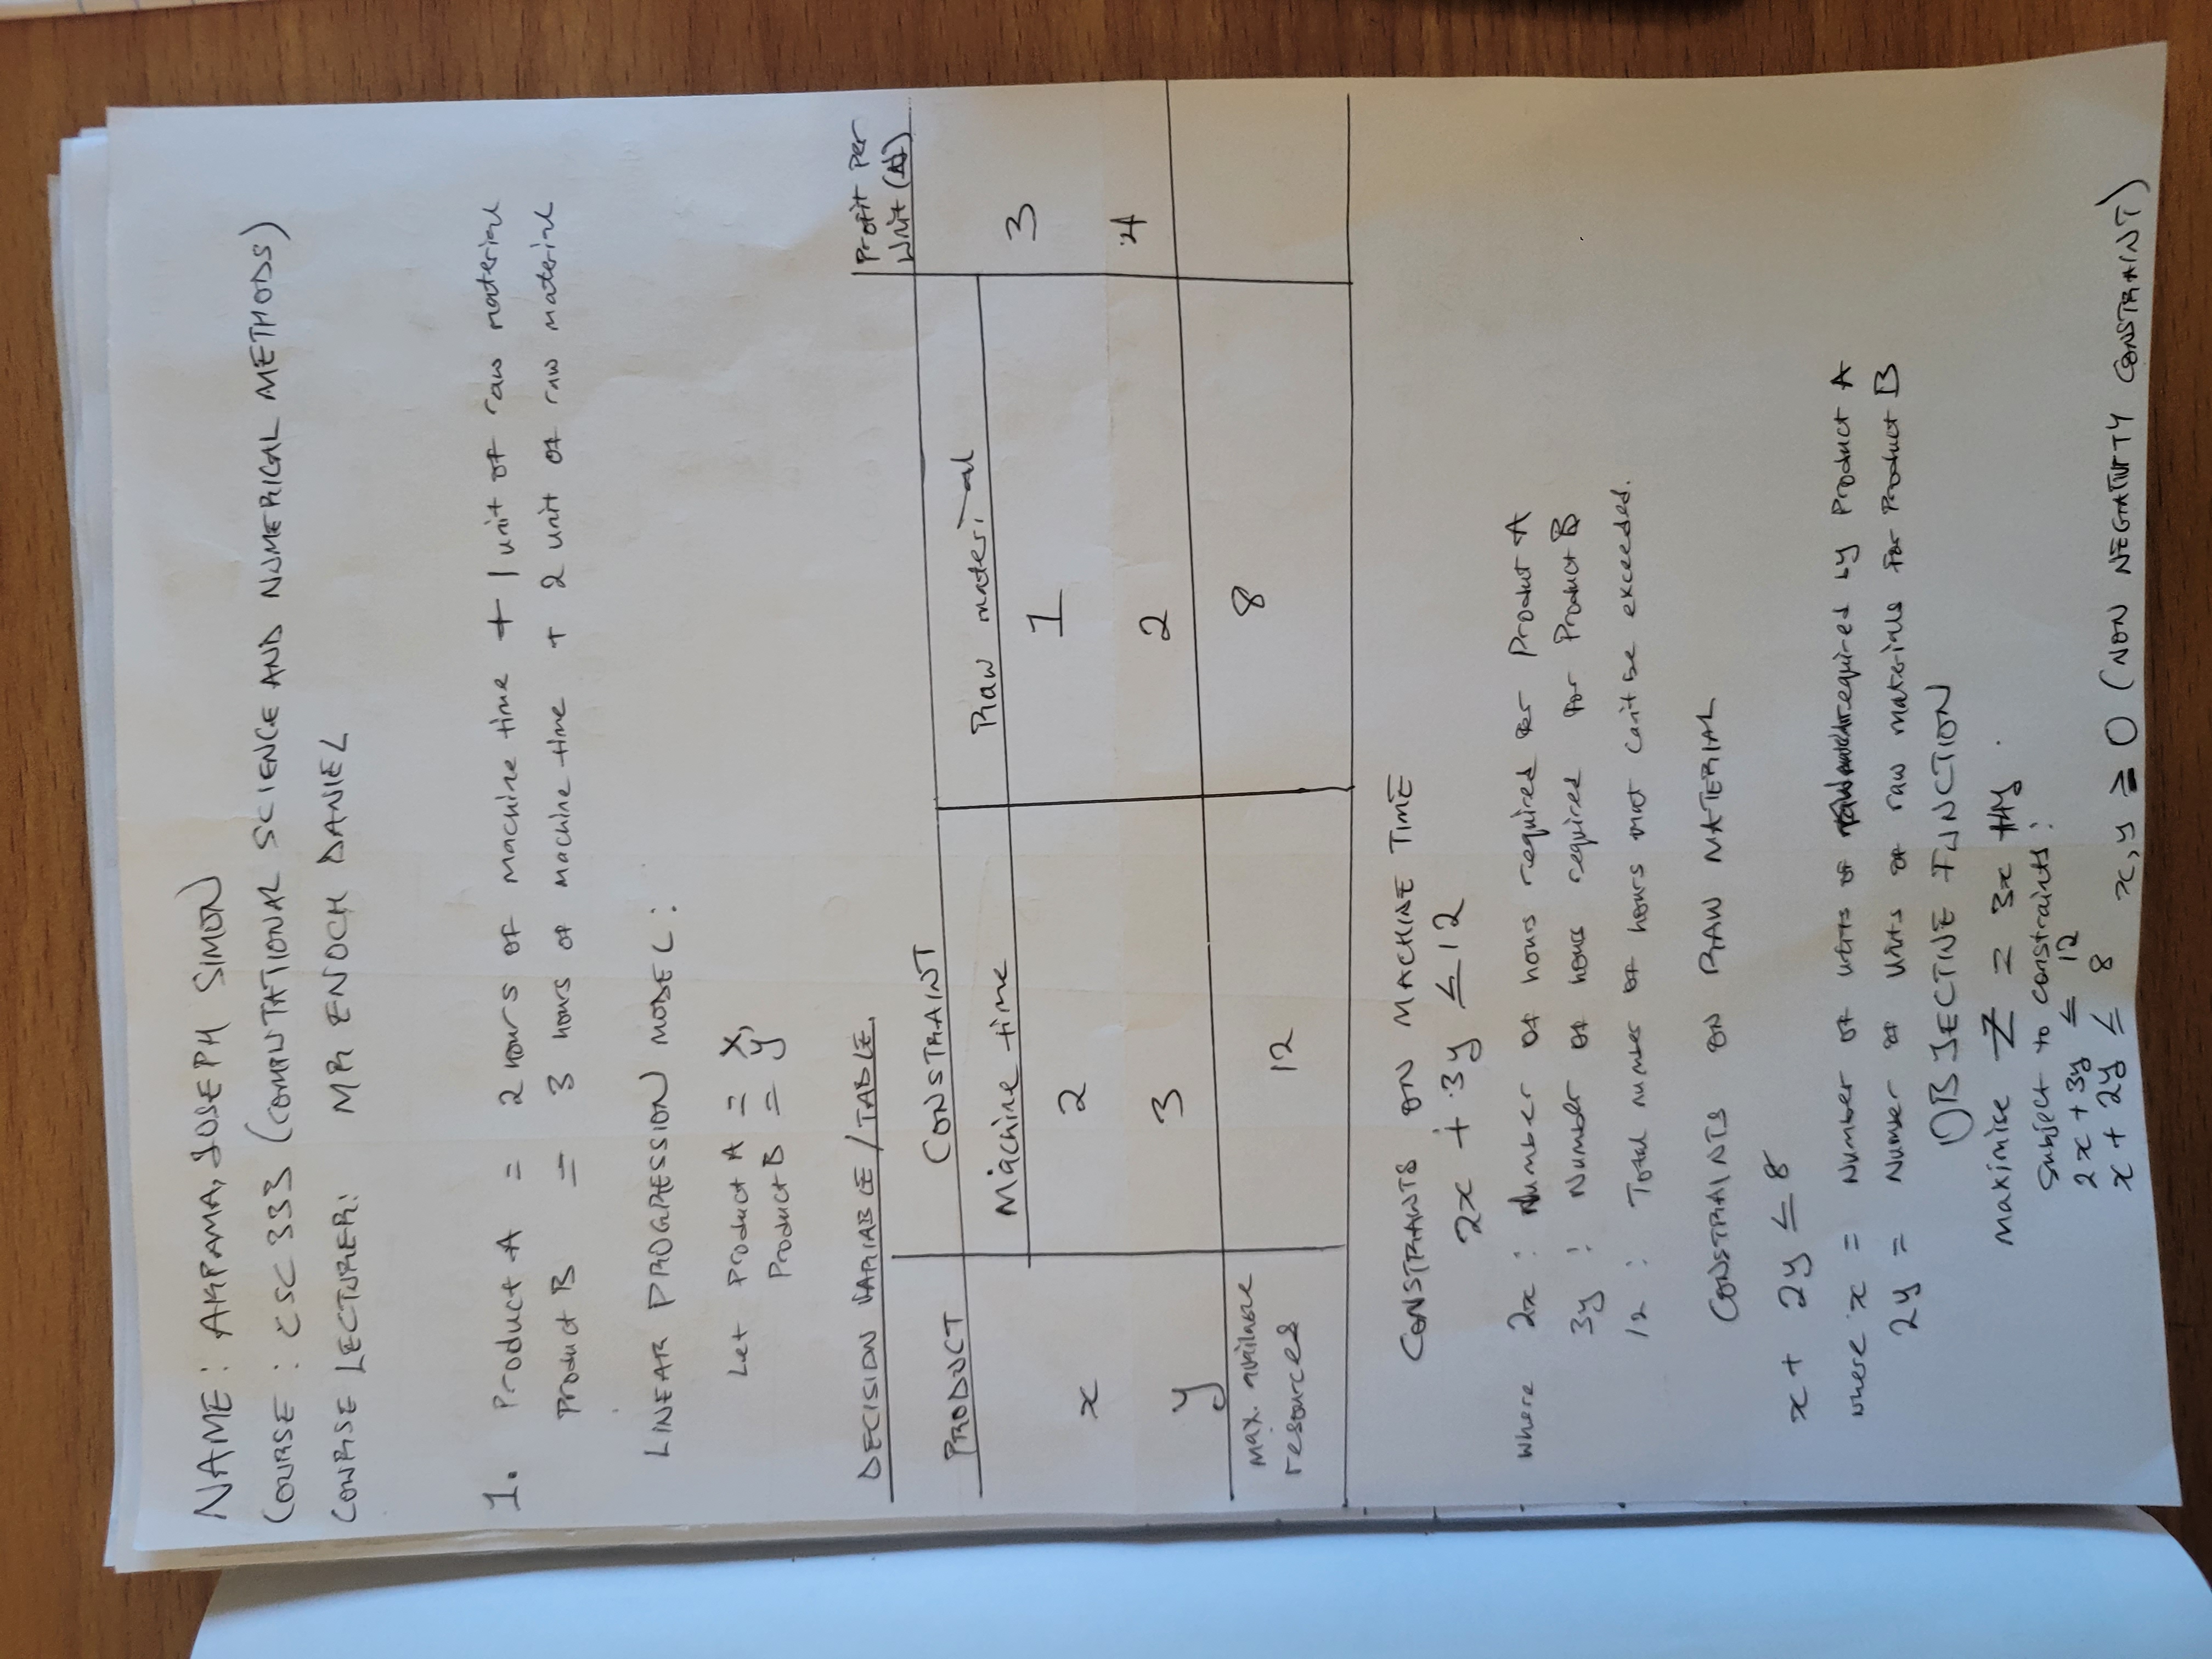 NAME: AKPAMA, JOSEPH SIMON
COURSE: CSC 333 (COMPUTATIONAL SCIENCE AND NUMERICAL METHODS)
COURSE LECTURER: MR ENOCH DANIEL
1. Product A = 2 hours of machine time + 1 unit of raw material
Product B = 3 hours of machine time + 2 unit of raw material
LINEAR PROGRESSION MODEL:
Let Product A = x,
Product B = y
DECISION VARIABLE / TABLE.
Profit per
Unit (₦)
PRODUCT CONSTRAINT
Machine time Raw material
x 2 1 3
y 3 2 4
max. available
resources 12 8
CONSTRAINTS ON MACHINE TIME
2x + 3y ≤ 12
where 2x : Number of hours required for Product A
3y : Number of hours required for Product B
12 : Total number of hours that can't be exceeded.
CONSTRAINTS ON RAW MATERIAL
x + 2y ≤ 8
where x = Number of units of required by Product A
2y = Number of units of raw materials for Product B
OBJECTIVE FUNCTION
Maximise Z = 3x + 4y
Subject to constraints:
2x + 3y ≤ 12
x + 2y ≤ 8 x, y ≥ 0 (NON NEGATIVITY CONSTRAINT)